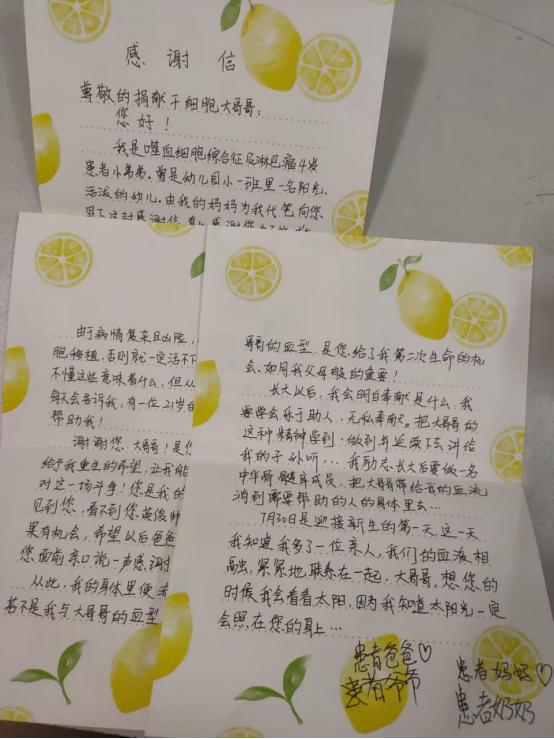 感谢信
尊敬的捐献干细胞大哥哥：
您好！
我是噬血细胞综合征及淋巴瘤4岁
患者小弟弟。曾是幼儿园小一班里一名阳光、
活泼的幼儿。由我的妈妈为我代笔向您
写下这封感谢信
由于病情复杂且凶险，
胞移植，否则就一定活不下
不懂这些意味着什么，但从
每天会告诉我，有一位21岁的
帮助我！
谢谢您，大哥哥！是您
给予我重生的希望，让我能
对这一场斗争！您是我的
见到您，看不到您英俊帅
果有机会，希望以后爸爸
您面前亲口说一声感谢
从此，我的身体里便流
若不是我与大哥哥的血型
哥哥的血型，是您给了我第二次生命的机
会，如同我父母般的重要！
长大以后，我会明白奉献是什么，我
要学会乐于助人、无私奉献。把大哥哥的
这种精神学到，做到并延续下去，讲给
我的子孙听，...我励志，长大后要做一名
中华骨髓库成员，把大哥哥带给我的血流
淌到需要帮助的人的身体里去...
7月30日是迎接新生的第一天，这一天
我知道我多了一位亲人，我们的血液相
融，紧紧地联系在一起，大哥哥，想您的
时候我会看看太阳，因为我知道太阳光一定
会照在您的身上...
患者爸爸♡
患者妈妈♡
患者爷爷
患者奶奶